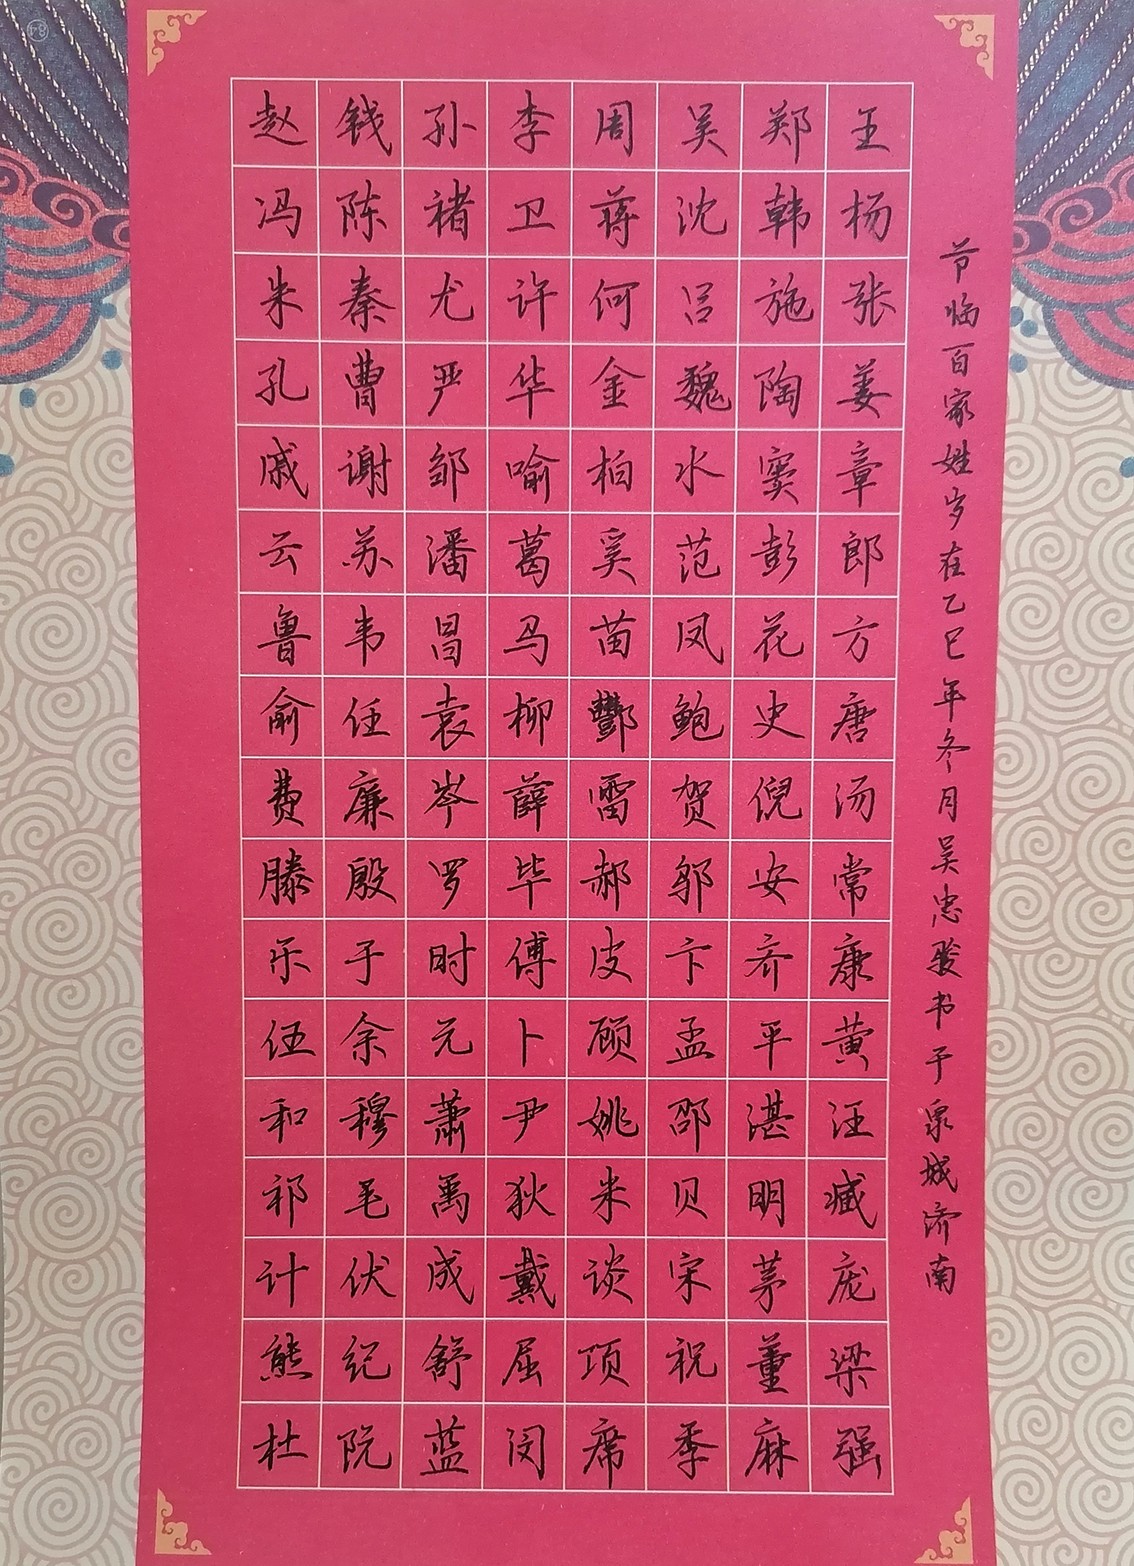 赵钱孙李周吴郑王
冯陈褚卫蒋沈韩杨
朱秦尤许何吕施张
孔曹严华金魏陶姜
戚谢邹喻柏水窦章
云苏潘葛奚范彭郎
鲁韦昌马苗凤花方
俞任袁柳酆鲍史唐
费廉岑薛雷贺倪汤
滕殷罗毕郝邬安常
乐于时傅皮卞齐康
伍余元卜顾孟平黄
和穆萧尹姚邵湛汪
祁毛禹狄米贝明臧
计伏成戴谈宋茅庞
熊纪舒屈项祝董梁
杜阮蓝闵席季麻强
节临百家姓岁在乙巳年冬月吴忠骏书于泉城济南